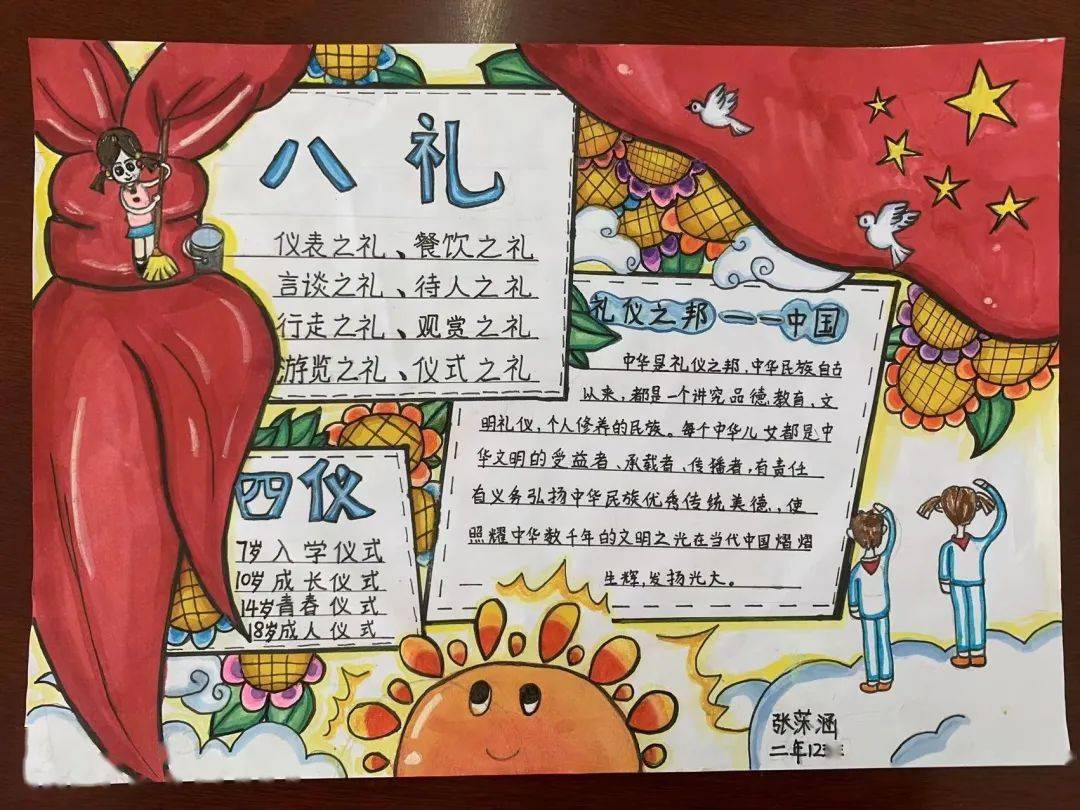 八礼
仪表之礼、餐饮之礼
言谈之礼、待人之礼
行走之礼、观赏之礼
游览之礼、仪式之礼
四仪
7岁入学仪式
10岁成长仪式
14岁青春仪式
18岁成人仪式
礼仪之邦——中国
中华是礼仪之邦,中华民族自古
以来,都是一个讲究品德教育、文
明礼仪,个人修养的民族。每个中华儿女都是中
华文明的受益者、承载者、传播者,有责任
有义务弘扬中华民族优秀传统美德,使
照耀中华数千年的文明之光在当代中国熠熠
生辉,发扬光大。
张莯涵
二年12